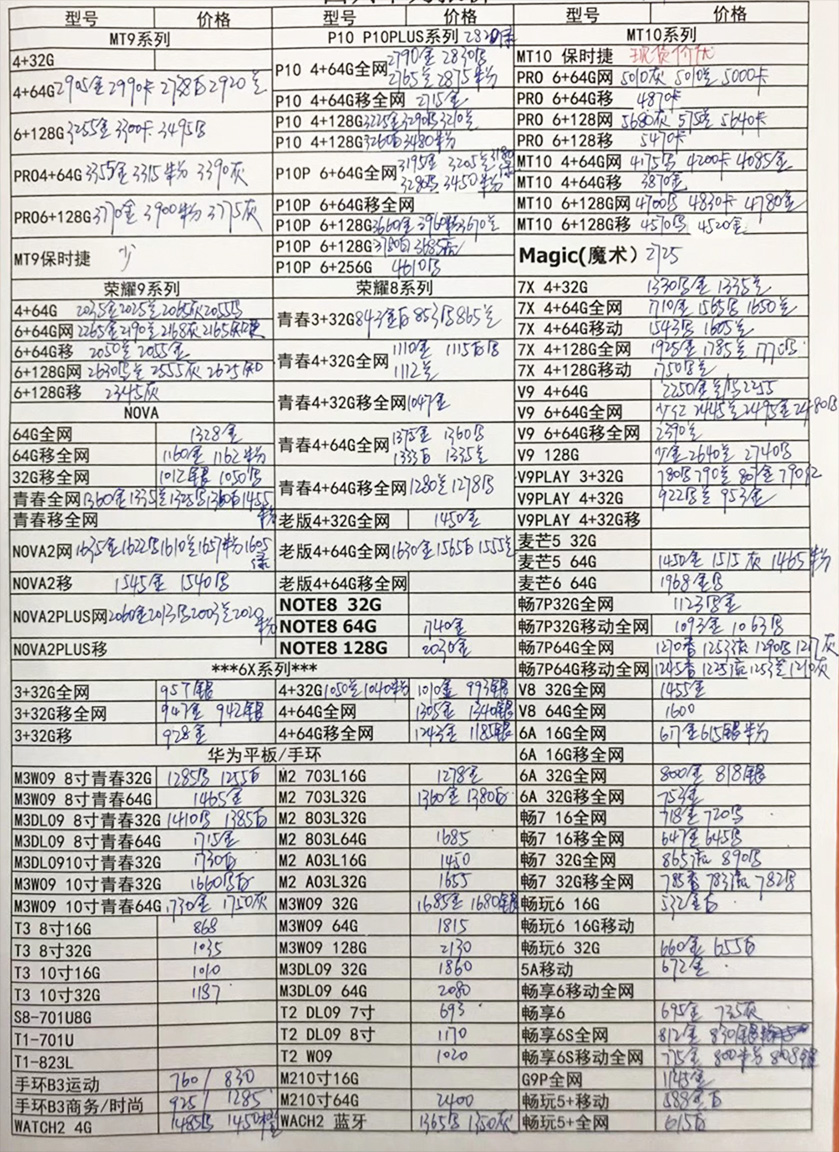 型号 价格 型号 价格 型号 价格
MT9系列
4+32G
4+64G 2905金 2990卡 2738白 2920兰
6+128G 3255金 3300卡 3495
PRO4+64G 3355金 3315粉 3390灰
PRO6+128G 3770金 3900粉 3775灰
MT9保时捷 少
荣耀9系列
4+64G 2035金 2025兰 2065灰 2055
6+64G网 2265金 2190兰 2168灰 2165
6+64G移 2050兰 2055金
6+128G网 2630 2555灰 2625
6+128G移 2345灰
NOVA
64G全网 1328金
64G移全网 1160金 1162粉
32G移全网 1012银 1050
青春全网 1360金 1335兰 1325 1360白 1455粉
青春移全网
NOVA2网 1635金 1622 1610兰 1657粉 1605绿
NOVA2移 1545金 1540
NOVA2PLUS网 2060金 2013 2003兰
NOVA2PLUS移
***6X系列***
3+32G全网 957银
3+32G移全网 947金 942银
3+32G移 928金
4+32G 1050兰 1040粉 1010金 993银
4+64G全网 1305金 1340银
4+64G移全网 1243金 1185银
华为平板/手环
M3W09 8寸青春32G 1285 1255白
M3W09 8寸青春64G 1465金
M3DL09 8寸青春32G 1410 1385白
M3DL09 8寸青春64G 1715金
M3DL0910寸青春32G 1730白
M3W09 10寸青春32G 1660白
M3W09 10寸青春64G 1730金 1750灰
T3 8寸16G 868
T3 8寸32G 1035
T3 10寸16G 1010
T3 10寸32G 1187
S8-701U8G
T1-701U
T1-823L
手环B3运动 760/830
手环B3商务/时尚 925/1285
WATCH2 4G 1485 1450
P10 P10PLUS系列
P10 4+64G全网 2790金 2830 2765兰 2875粉
P10 4+64G移全网 2715金
P10 4+128G 3225金 3290 3210兰
P10 4+128G 3260白 3480粉
P10P 6+64G全网 3195金 3205兰 3280 3450粉
P10P 6+64G移全网
P10P 6+128G 3660金 3670兰
P10P 6+128G 3685灰
P10P 6+256G 4610
荣耀8系列
青春3+32G 843金白 853 865兰
青春4+32G全网 1110金 1115白 1112兰
青春4+32G移全网 1047金
青春4+64G全网 1375金 1360 1333白 1335兰
青春4+64G移全网 1280兰 1278
老版4+32G全网 1450金
老版4+64G全网 1630金 1565白 1555兰
老版4+64G移全网
NOTE8 32G
NOTE8 64G 1740金
NOTE8 128G 2030金
M2 703L16G 1278金
M2 703L32G 1360金 1380白
M2 803L32G
M2 803L64G 1685
M2 A03L16G 1450
M2 A03L32G 1655
M3W09 32G 1685金 1680银
M3W09 64G 1815
M3W09 128G 2130
M3DL09 32G 1860
M3DL09 64G 2080
T2 DL09 7寸 693
T2 DL09 8寸 1170
T2 W09 1020
M210寸16G
M210寸64G 2400
WACH2 蓝牙 1365 1350灰
MT10系列
MT10 保时捷 现货价优
PRO 6+64G网 5010灰 5010兰 5000卡
PRO 6+64G移 4870卡
PRO 6+128网 5680灰 575兰 5640卡
PRO 6+128移 5470卡
MT10 4+64G网 4175 4200卡 4085金
MT10 4+64G移 3870金
MT10 6+128G网 4700 4830卡 4780金
MT10 6+128G移 4570 4520金
Magic(魔术) 2725
7X 4+32G 1330金 1335兰
7X 4+64G全网 1710金 1565 1650兰
7X 4+64G移动 1543 1605兰
7X 4+128G全网 1925金 1785兰 1770
7X 4+128G移动 1750
V9 4+64G 2250金兰 2255
V9 6+64G全网 2445兰 2495金 2480
V9 6+64G移全网 2390兰
V9 128G 少金 2640兰 2740
V9PLAY 3+32G 780 790兰 807金 790红
V9PLAY 4+32G 922兰 953金
V9PLAY 4+32G移
麦芒5 32G
麦芒5 64G 1450金 1515灰 1465粉
麦芒6 64G 1968金
畅7P32G全网 1123金
畅7P32G移动全网 1093金 1063
畅7P64G全网 1270香 1253 1290 1217灰
畅7P64G移动全网 1245香 1225 1253兰 1210灰
V8 32G全网 1455金
V8 64G全网 1600
6A 16G全网 677金 615银粉
6A 16G移全网
6A 32G全网 800金 818银
6A 32G移全网 753金
畅7 16全网 718金 720
畅7 16移全网 647金 645
畅7 32G全网 865 890
畅7 32G移全网 785香 783 782
畅玩6 16G 532金白
畅玩6 16G移动
畅玩6 32G 660金 655白
5A移动 672金
畅享6移动全网
畅享6 695金 735灰
畅享6S全网 812金 830银
畅享6S移动全网 775金 800粉 808银
G9P全网 1145金
畅玩5+移动 588金白
畅玩5+全网 615白